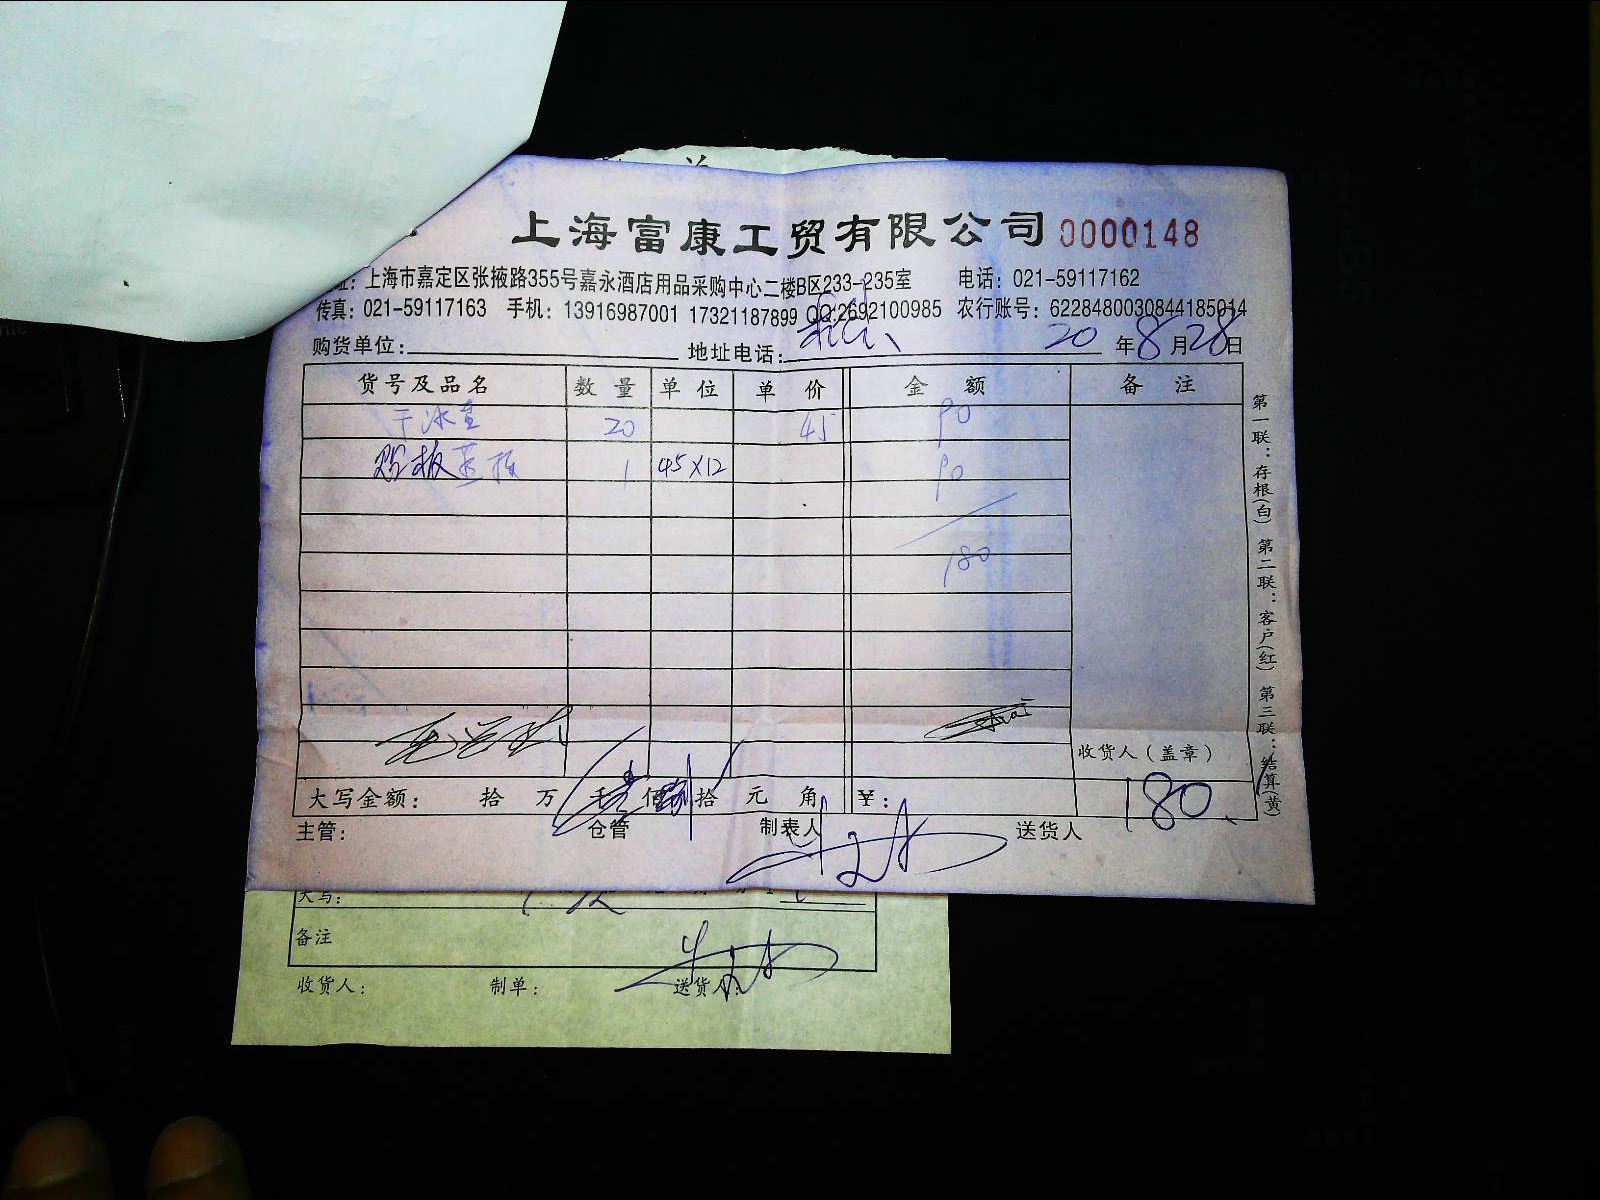 上海富康工贸有限公司 0000148
址：上海市嘉定区张掖路355号嘉永酒店用品采购中心二楼B区233-235室 电话：021-59117162
传真：021-59117163 手机：13916987001 17321187899 QQ:2692100985 农行账号：6228480030844185014
购货单位： 地址电话： 20年8月28日
货号及品名 数量 单位 单价 金额 备注
干冰 20 45 90
板 1 45×12 90
180
收货人（盖章）
大写金额： 拾 万 仟 佰 拾 元 角 ￥： 180
主管： 仓管 制表人 送货人
第一联：存根(白) 第二联：客户(红) 第三联：结算(黄)
大写：
备注
收货人： 制单： 送货人：